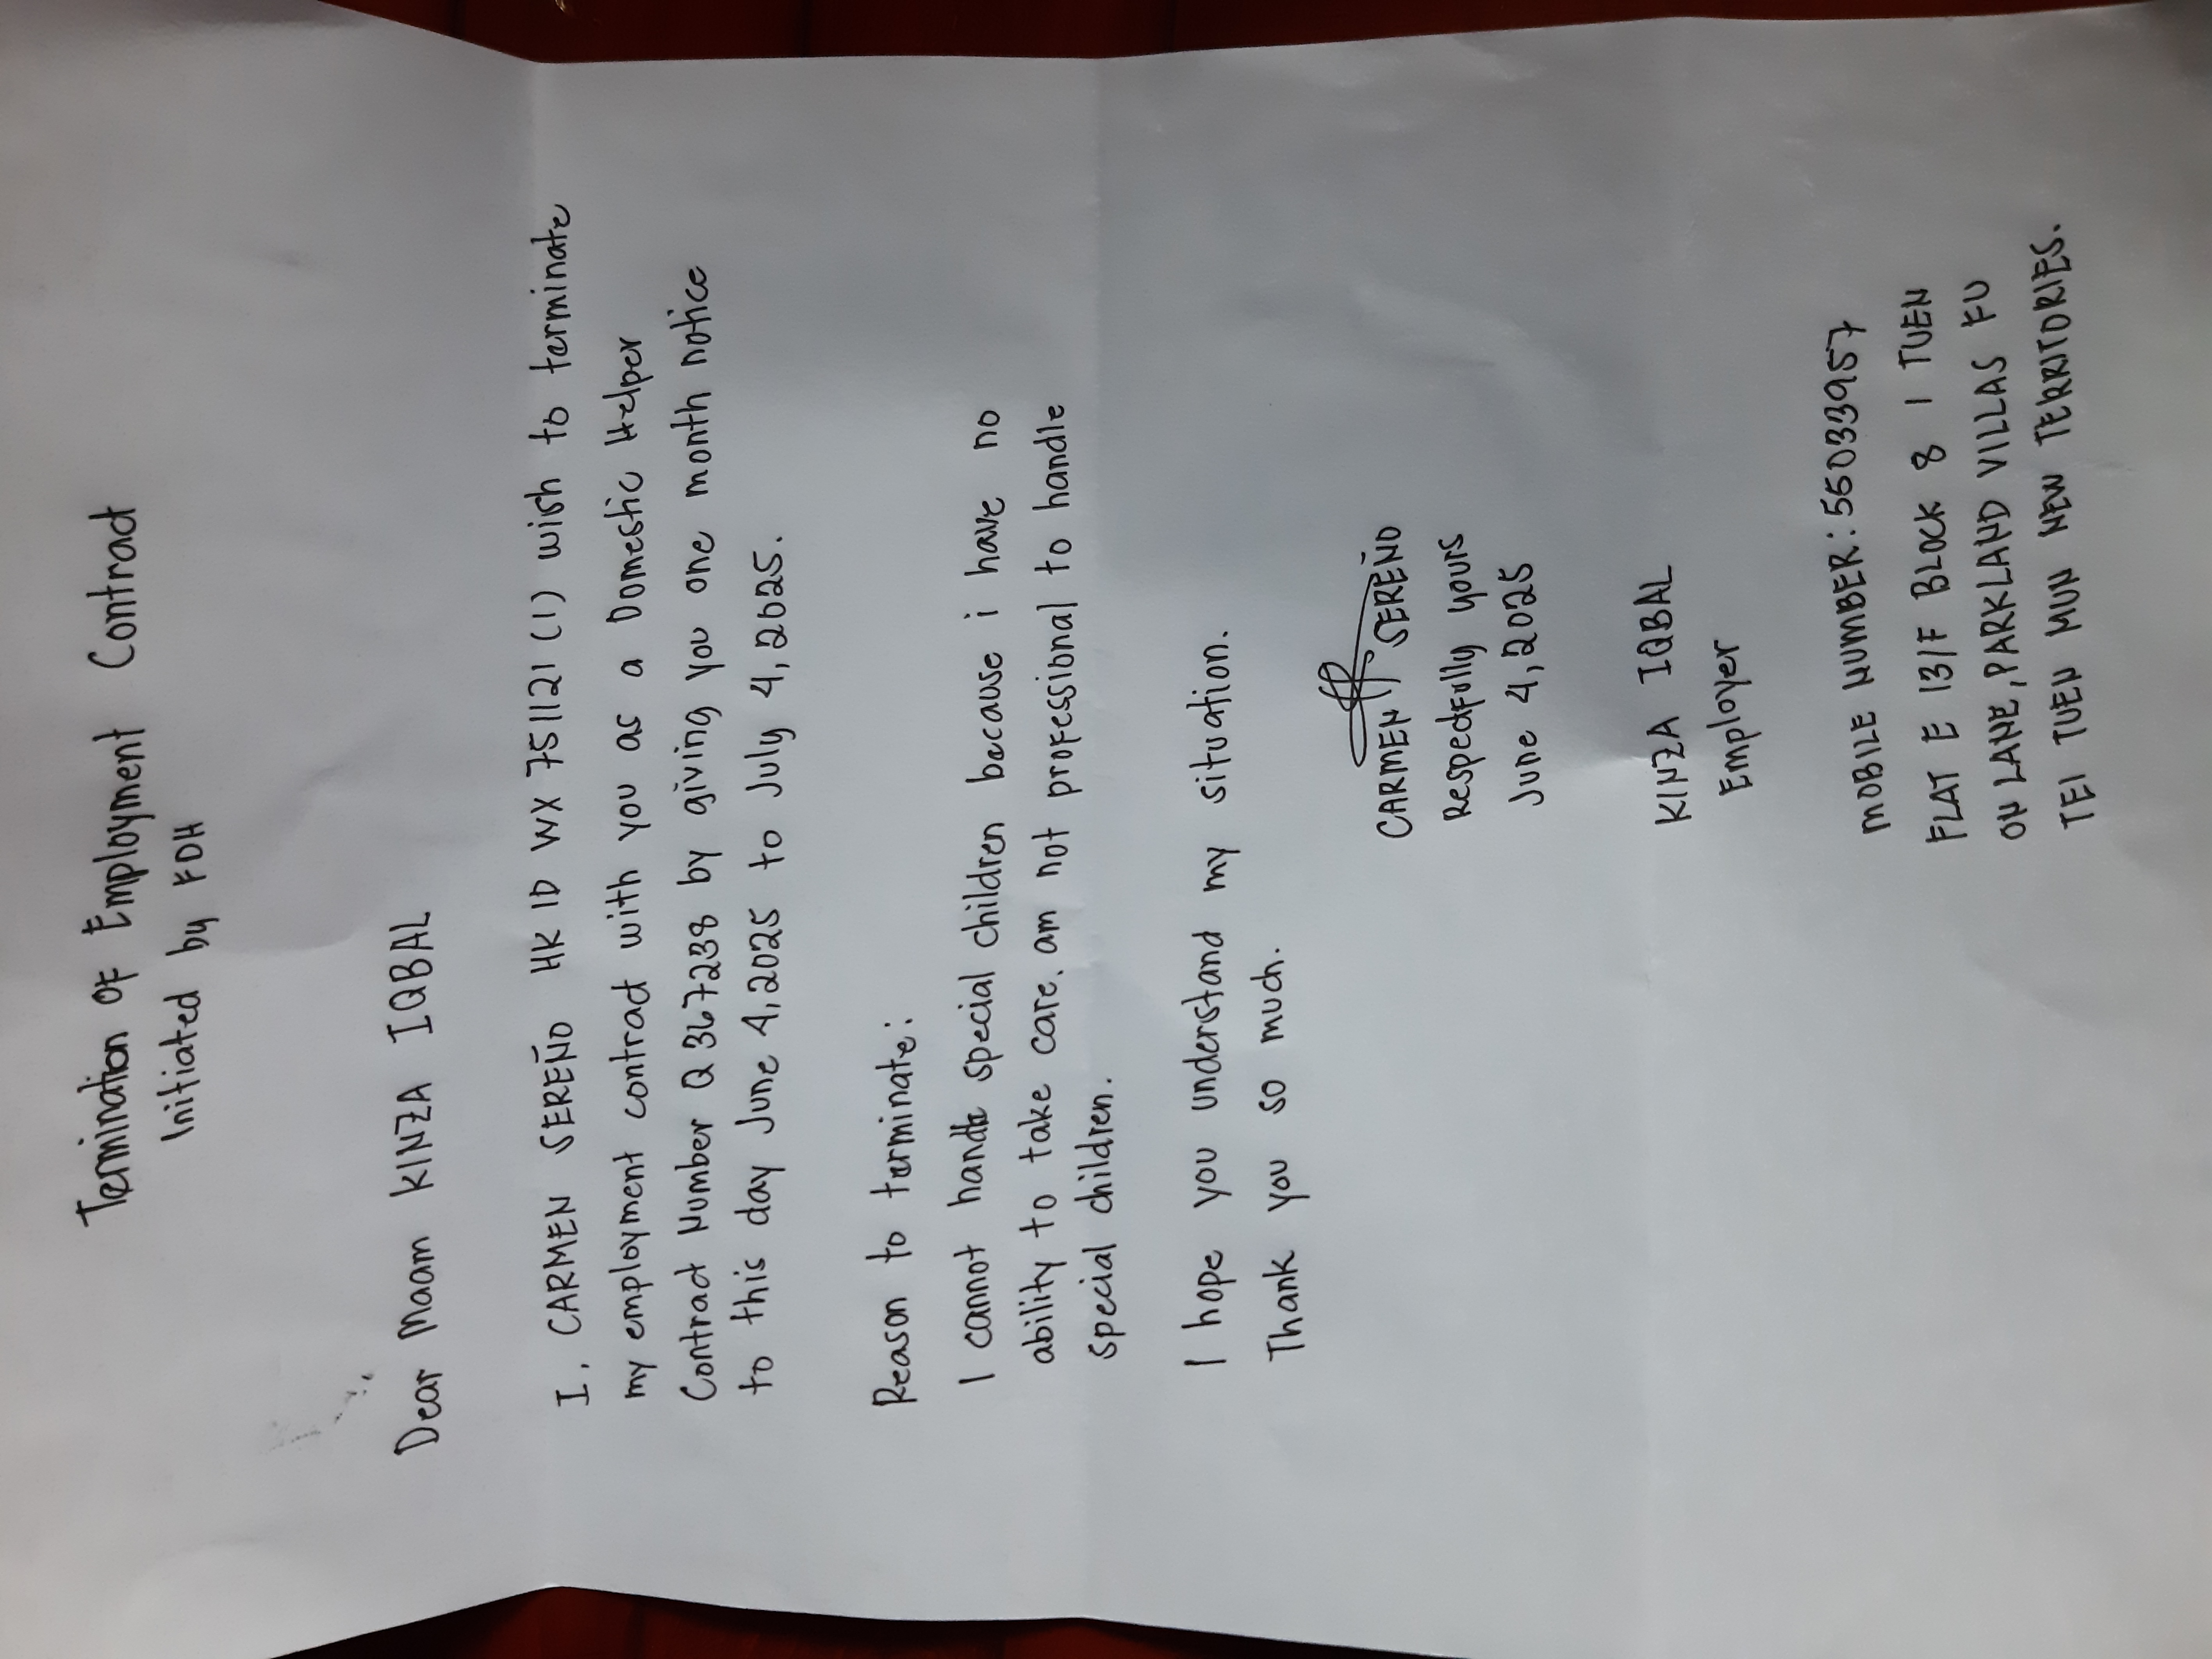 Termination of Employment Contract
Initiated by FDH
Dear Maam KINZA IQBAL
I, CARMEN SEREÑO HK ID WX 751121 (1) wish to terminate
my employment contract with you as a Domestic Helper
Contract Number Q 367238 by giving you one month notice
to this day June 4, 2025 to July 4, 2025.
Reason to terminate:
I cannot handle special children because i have no
ability to take care. am not professional to handle
special children.
I hope you understand my situation.
Thank you so much.
CARMEN P. SEREÑO
Respectfully yours
June 4, 2025
KINZA IQBAL
Employer
MOBILE NUMBER: 55033957
FLAT E 13/F BLOCK 8 1 TUEN
ON LANE, PARKLAND VILLAS FU
TEI TUEN MUN NEW TERRITORIES.